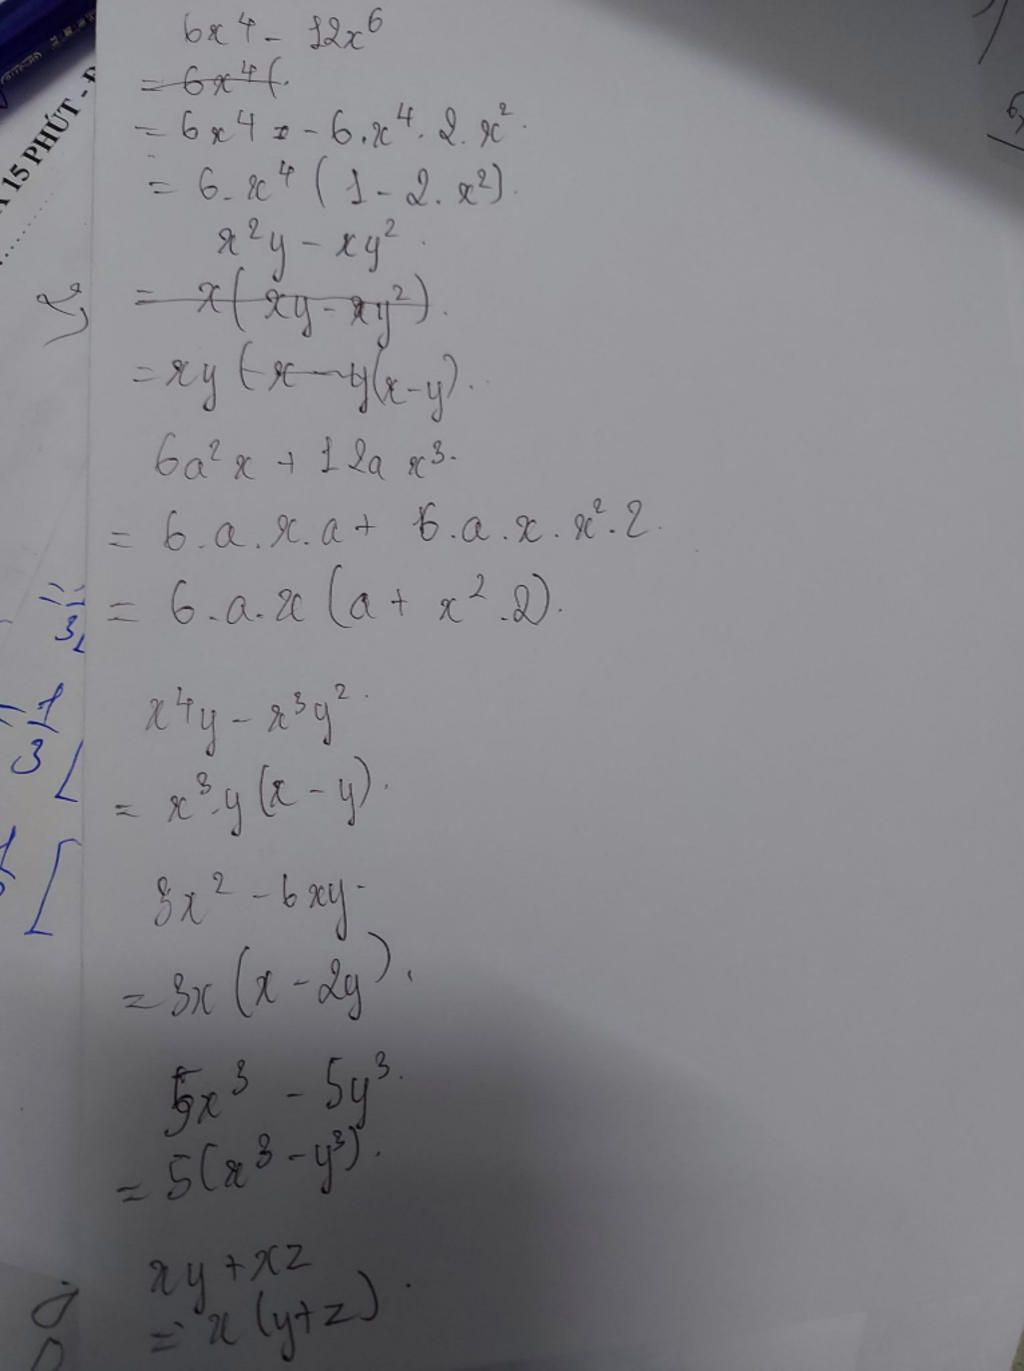 6x⁴ - 12x⁶
= 6x⁴(
= 6x⁴ - 6.x⁴.2.x².
= 6.x⁴(1 - 2.x²).
x²y - xy².
= x(xy - xy²).
= xy(x - y(x-y).
6a²x + 12ax³.
= 6.a.x.a + 6.a.x.x².2.
= 6.a.x(a + x².2).
x⁴y - x³y².
= x³.y(x - y).
3x² - 6xy.
= 3x(x - 2y).
5x³ - 5y³.
= 5(x³ - y³).
xy + xz
= x(y+z).
15 PHÚT - Đ